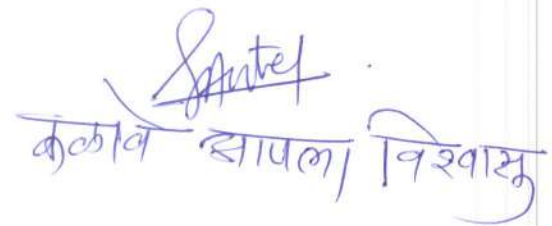 कळावे आपला विश्वासू